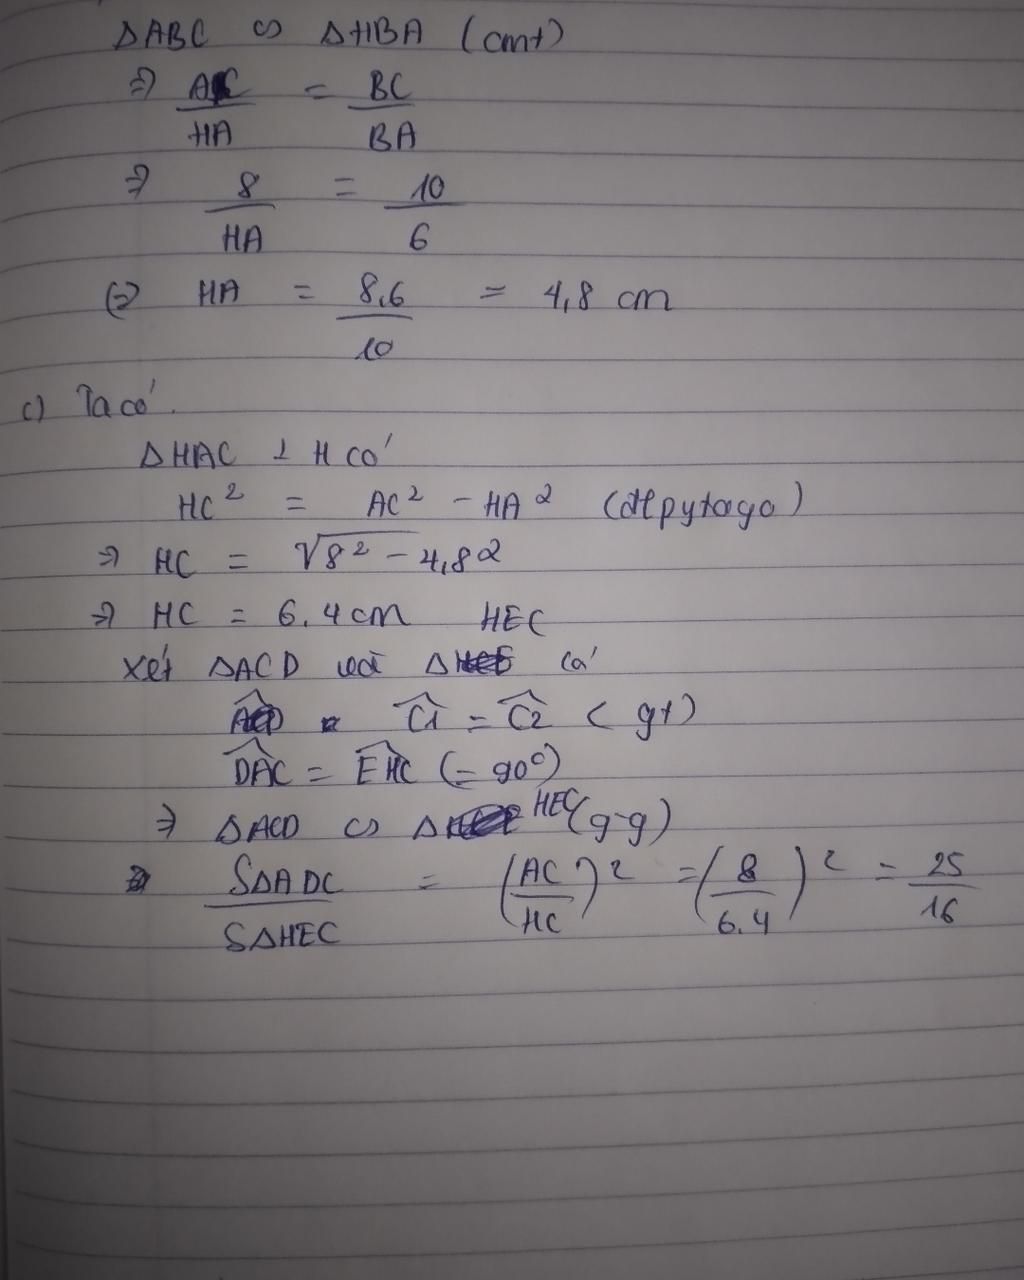 ΔABC ∽ ΔHBA (cmt)
=> AC/HA = BC/BA
=> 8/HA = 10/6
(=> HA = 8.6/10 = 4,8 cm
c) Ta có.
ΔHAC ⊥ H có
HC² = AC² - HA² (đlpytago)
=> HC = √8² - 4,8²
=> HC = 6.4 cm HEC
xét ΔACD và Δ có
Ĉ1 = Ĉ2 (gt)
DAC = EHC (= 90°)
=> ΔACD ∽ Δ HEC (g-g)
SΔADC/SΔHEC = (AC/HC)² = (8/6.4)² = 25/16